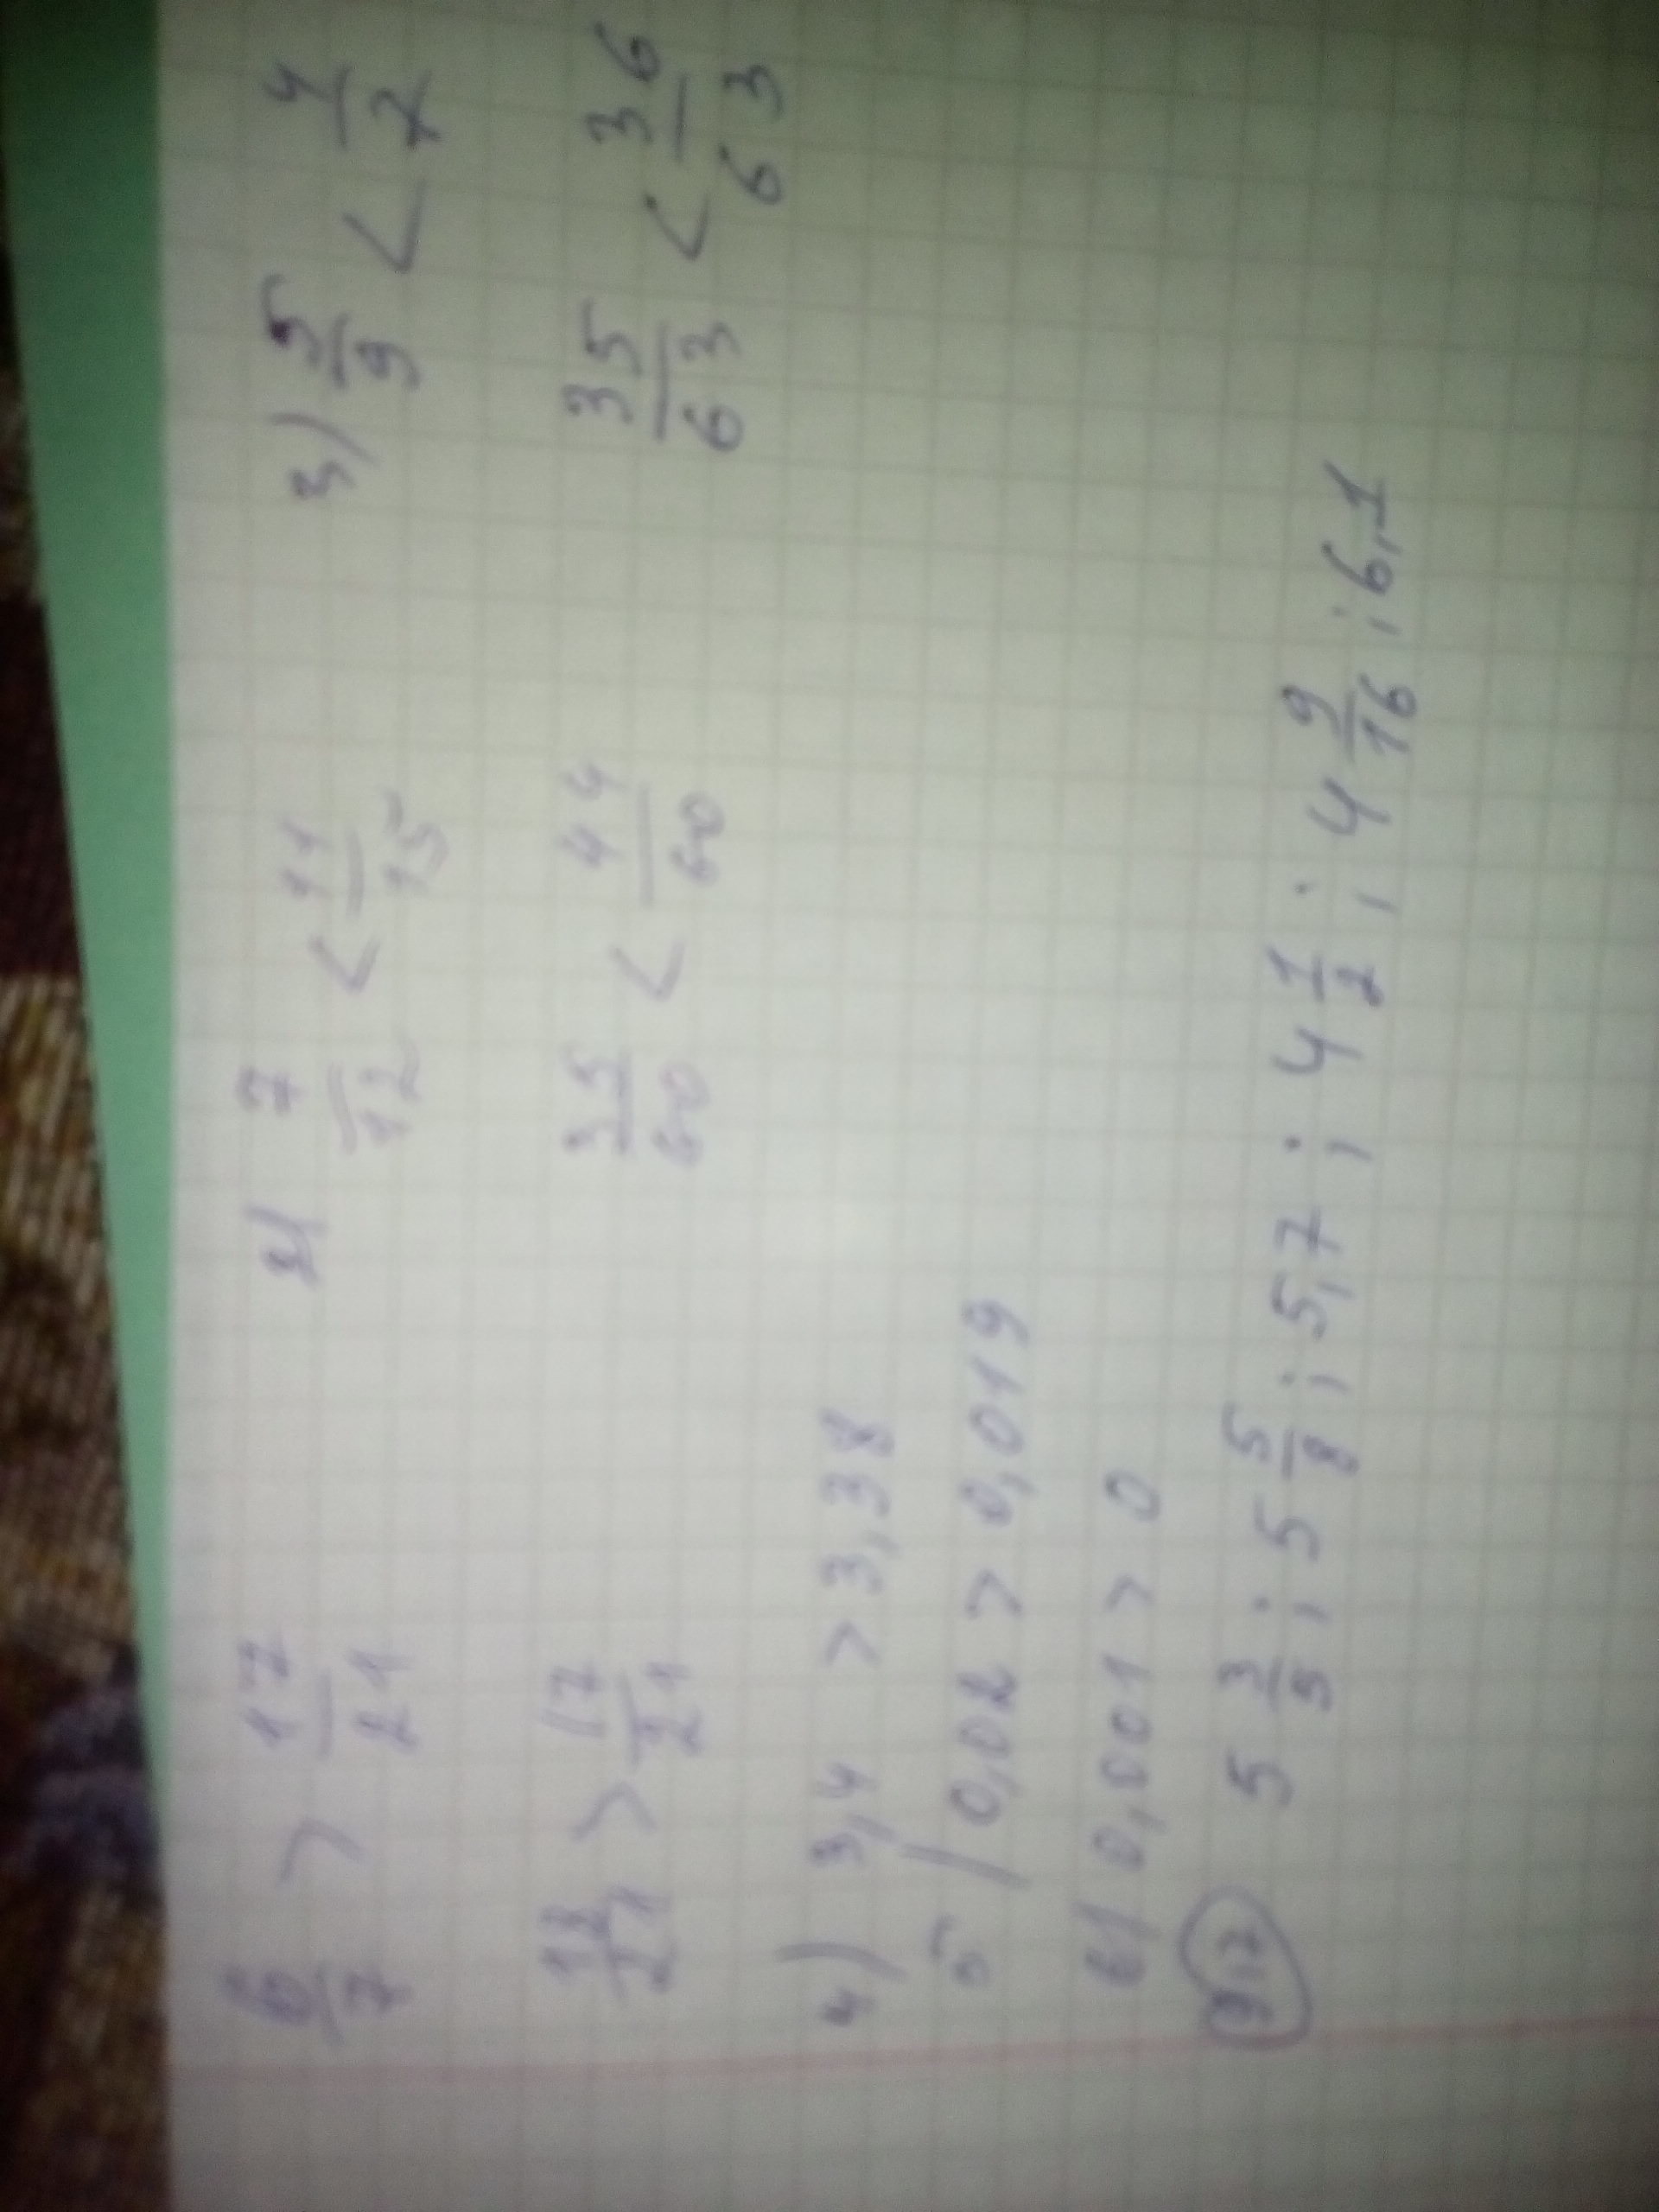 6/7 > 17/21 2) 7/12 < 11/15 3) 5/9 < 4/7
18/21 > 17/21 35/60 < 44/60 35/63 < 36/63
4) 3,4 > 3,38
5) 0,02 > 0,019
6) 0,001 > 0
5 3/5 ; 5 5/8 ; 5,7 ; 4 1/2 ; 4 9/16 ; 6,1